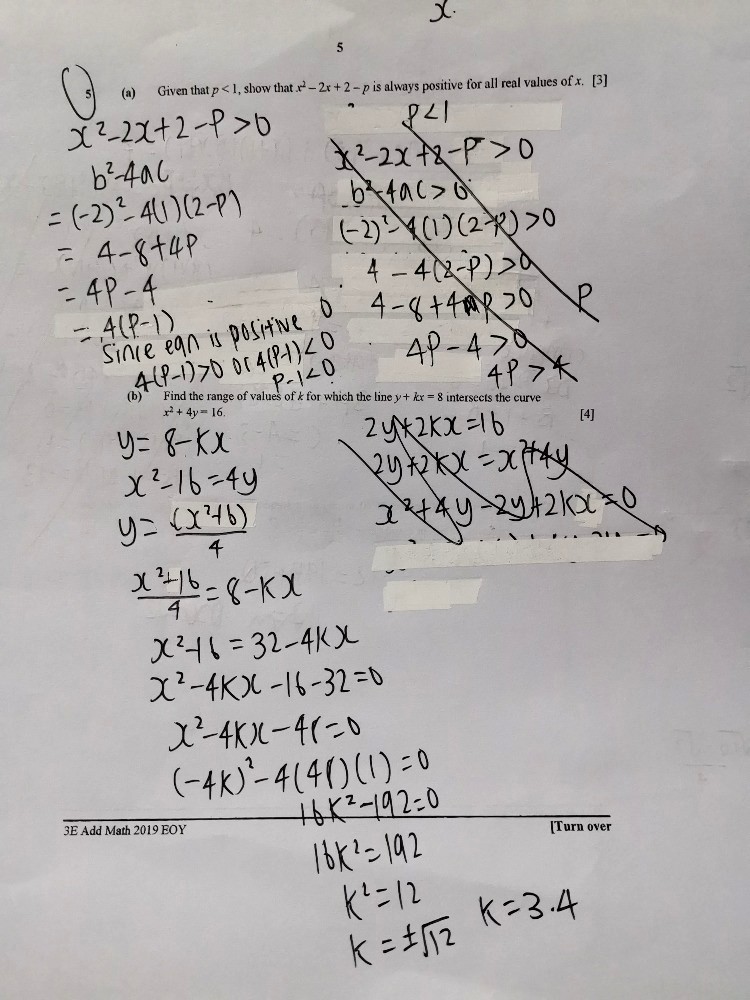 x.
5
5 (a) Given that p < 1, show that x² – 2x + 2 – p is always positive for all real values of x. [3]
x²-2x+2-P>0
b²-4ac
=(-2)²-4(1)(2-P)
= 4-8+4P
= 4P-4
= 4(P-1)
Since eqn is positive
4(P-1)>0 or 4(P-1)<0
P-1<0
P<1
x²-2x+2-P>0
b²-4ac>0
(-2)²-4(1)(2-P)>0
4-4(2-P)>0
4-8+4P>0
P
4P-4>0
4P>4
(b) Find the range of values of k for which the line y + kx = 8 intersects the curve
x² + 4y = 16. [4]
y= 8-kx
x²-16=4y
y= (x²+16)
4
x²+16
4
=8-kx
x²+16=32-4kx
x²-4kx-16-32=0
x²-4kx-48=0
(-4k)²-4(48)(1)=0
16k²-192=0
2y+2kx=16
2y+2kx=x²+4y
x²+4y-2y+2kx=0
3E Add Math 2019 EOY [Turn over
16k²=192
k²=12
k=±√12 k=3.4